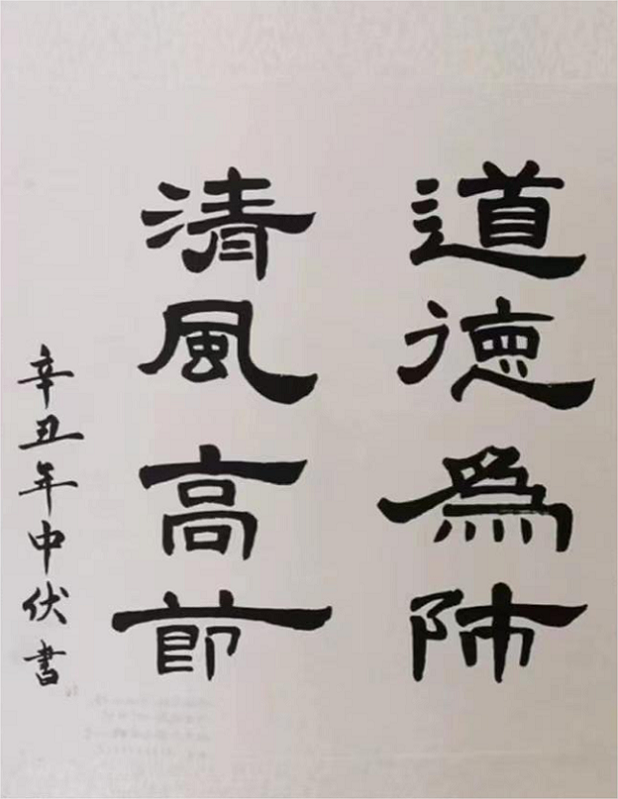 道德為师
清風高節
辛丑年中伏書